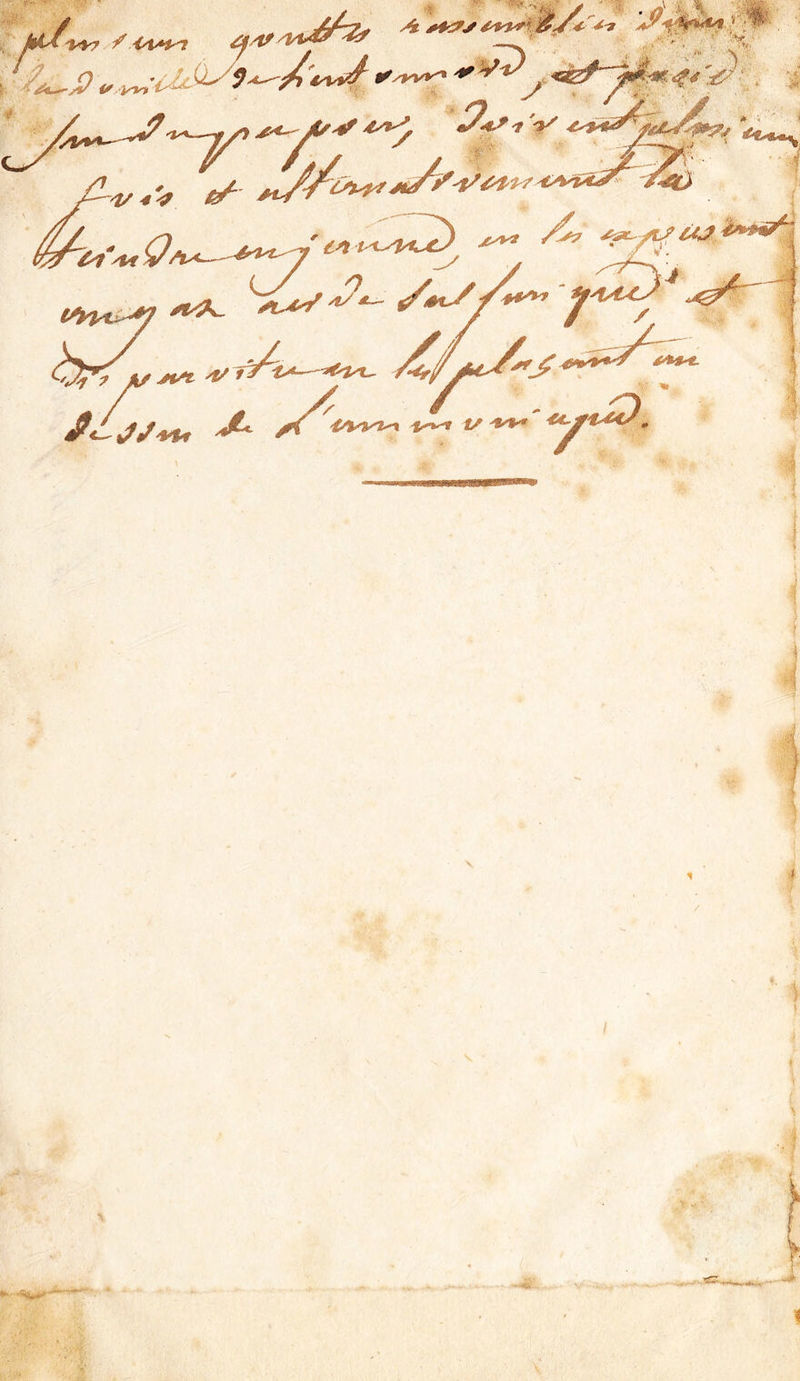 plusieurs gouttes rassemblées dans
la douille de l'entonnoir, et posé
sur du papier, doivent plusieurs
fois et alternativement la
teindre en jaune, en les exposant
au gaz acide sulfurique, et
disparoitre en les plaçant au
dessus de l'ammoniaque.